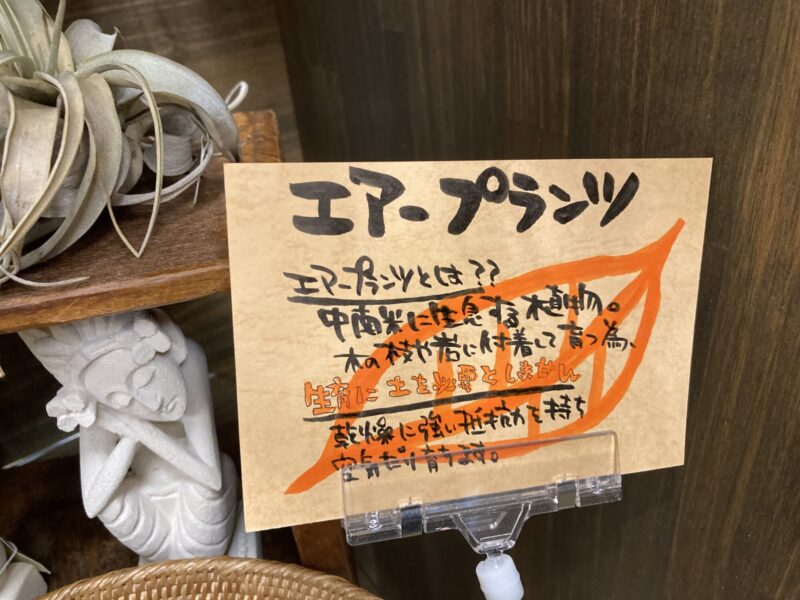 エアープランツ
エアープランツとは??
中南米に生息する植物。
木の枝や岩に付着して育つ為、
生育に土を必要としません
乾燥に強い抵抗力を持ち
空気だけで育ちます。